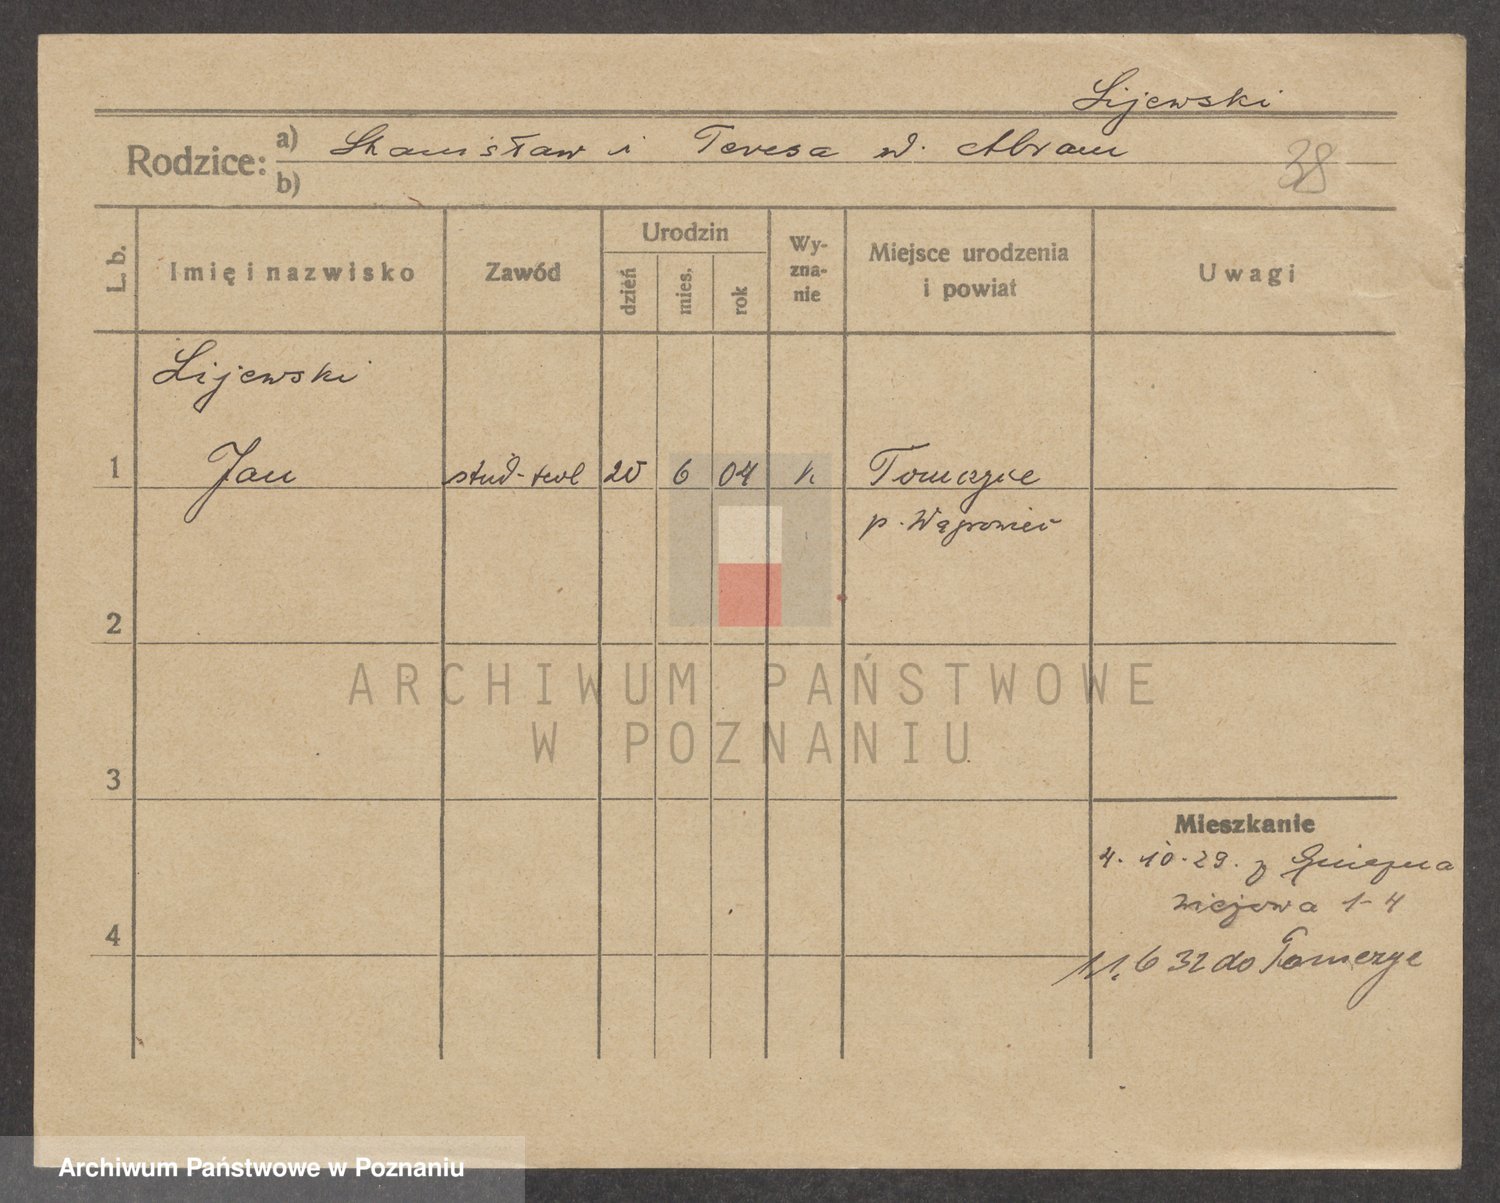 Lijewski
Rodzice: a) Stanisław i Teresa d. Abram
b)
38
L. b.
Imię i nazwisko
Zawód
Urodzin
dzień
mies.
rok
Wy-
zna-
nie
Miejsce urodzenia
i powiat
Uwagi
Lijewski
1 Jan stud. teol 20 6 04 k. Tomczyce
p. Wągrowiec
2
3
Mieszkanie
4. 10. 29. z Gniezna
Wieżowa 1-4
4
11. 6 32 do Tomczyc
ARCHIWUM PAŃSTWOWE
W POZNANIU
Archiwum Państwowe w Poznaniu